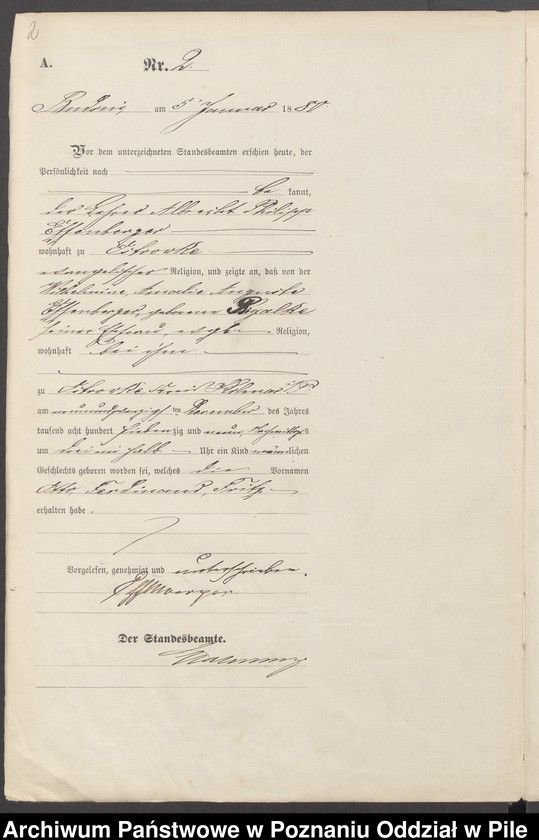 2
A. Nr. 2.
am 5 Januar 1880
Vor dem unterzeichneten Standesbeamten erschien heute, der
Persönlichkeit nach
be kannt,
der Lehrer Albrecht Philipp
Effenberger
wohnhaft zu
evangelischer Religion, und zeigte an, daß von der
Wilhelmine, Amalie Auguste
Effenberger, geborene Rzalke
seiner Ehefrau, evgl. Religion,
wohnhaft bei ihm
zu Kreis
am neunundzwanzigsten Dezember des Jahres
tausend acht hundert siebenzig und neun, Nachmittags
um drei ein halb Uhr ein Kind männlichen
Geschlechts geboren worden sei, welches die Vornamen
Otto, Ferdinand, Fritz
erhalten habe.
Vorgelesen, genehmigt und unterschrieben.
Effenberger
Der Standesbeamte.
Archiwum Państwowe w Poznaniu Oddział w Pile